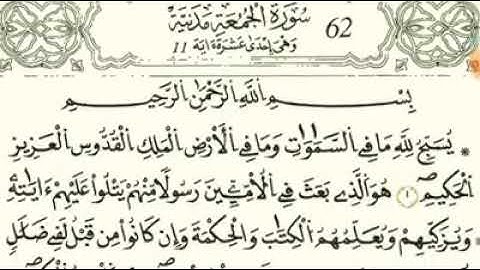 سُورَةُ الْجُمُعَةِ مَدَنِيَّةٌ 62
وَهْيَ إِحْدَى عَشَرَةَ ايَةً 11
بِسْمِ اللَّهِ الرَّحْمَٰنِ الرَّحِيمِ
* يُسَبِّحُ لِلَّهِ مَا فِي السَّمَٰوَٰتِ وَمَا فِي الْأَرْضِ الْمَلِكِ الْقُدُّوسِ الْعَزِيزِ
الْحَكِيمِ ۝١ هُوَ الَّذِي بَعَثَ فِي الْأُمِّيِّينَ رَسُولًا مِّنْهُمْ يَتْلُوا عَلَيْهِمْ ءَايَٰتِهِ
وَيُزَكِّيهِمْ وَيُعَلِّمُهُمُ الْكِتَٰبَ وَالْحِكْمَةَ وَإِن كَانُوا مِن قَبْلُ لَفِي ضَلَٰلٍ